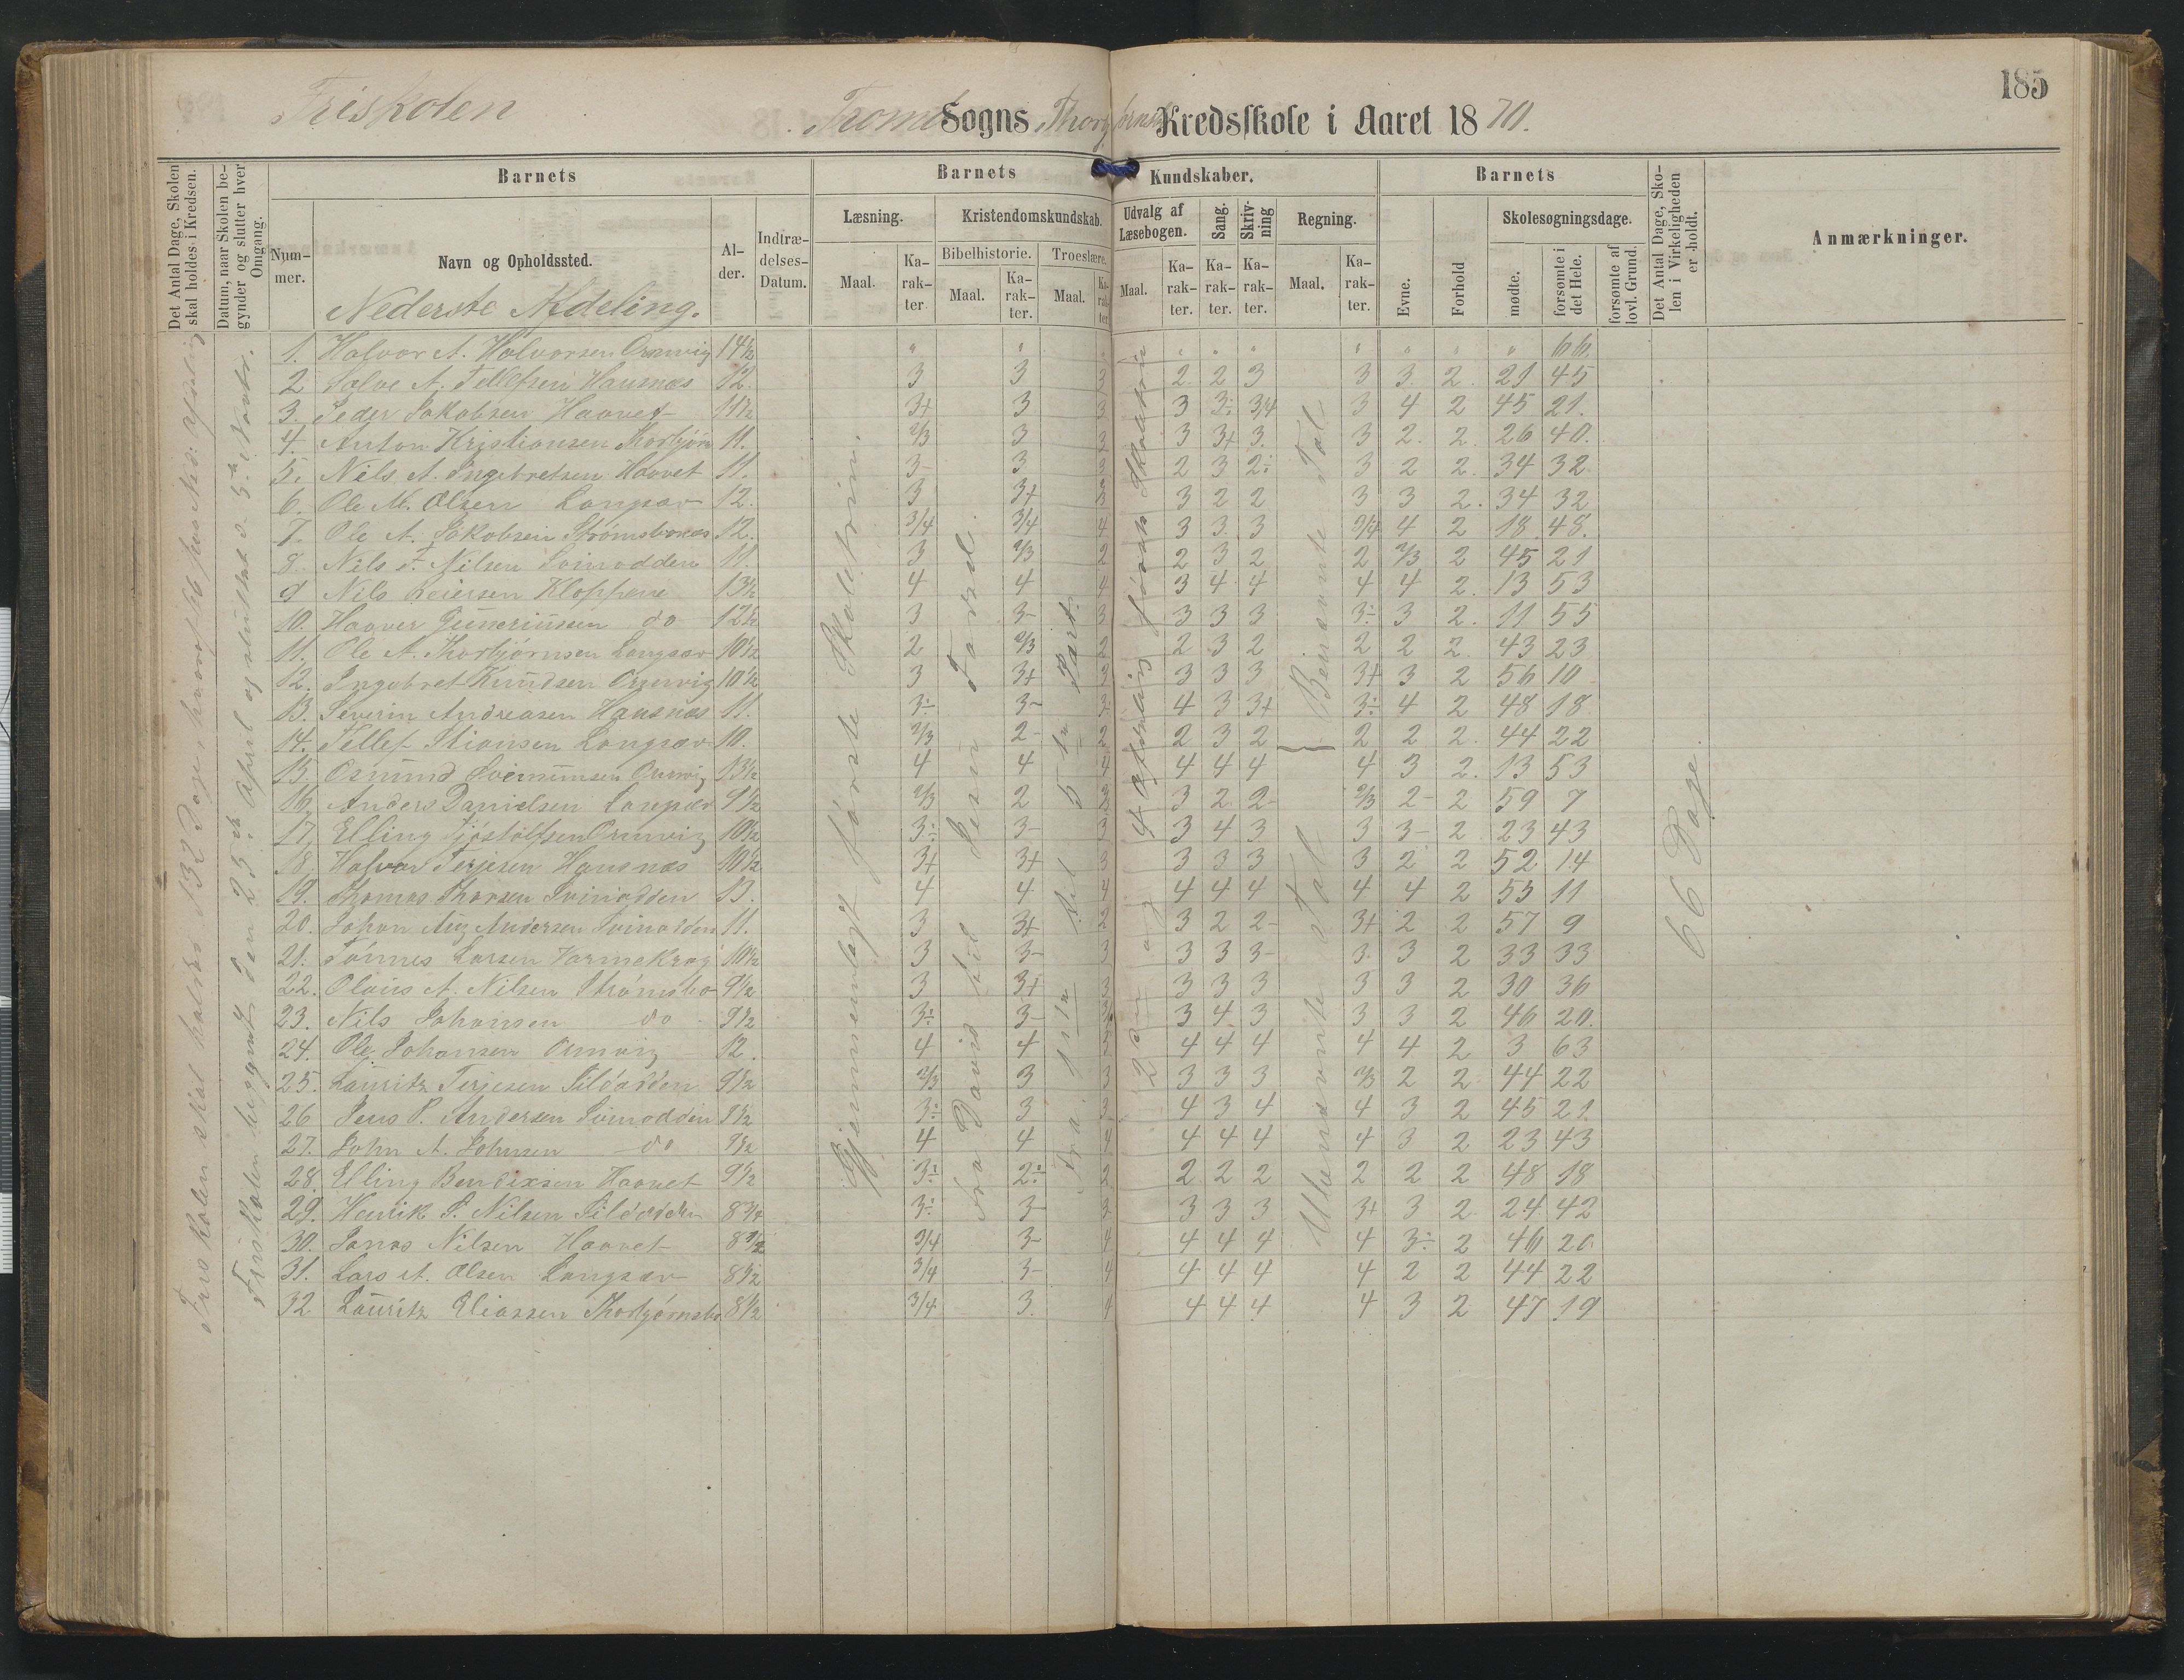 185
Friskolen Tromø Sogns Thorbjørnsbo Kredsskole i Aaret 1870.
Det Antal Dage, Skolen skal holdes i Kredsen.
Datum, naar Skolen begynder og slutter hver Omgang.
Barnets
Barnets Kundskaber.
Barnets
Det Antal Dage, Skolen i Virkeligheden er holdt.
Anmærkninger.
Nummer.
Navn og Opholdssted.
Alder.
Indtrædelses-Datum.
Læsning.
Kristendomskundskab.
Udvalg af Læsebogen.
Sang.
Skrivning
Regning.
Evne.
Forhold
Skolesøgningsdage.
Bibelhistorie.
Troeslære.
Maal. Karakter. Maal. Karakter. Maal. Karakter. Maal. Karakter. Karakter. Karakter. Maal. Karakter.
mødte.
forsømte i det Hele.
forsømte af lovl. Grund.
Nederste Afdeling.
1. Halvor A. Halvorsen Omvig 14½ " " " " " " " " " 66.
2 Salve A. Tellefsen Hausnæs 12. 3 3 3 2. 2 3 3 3. 2. 21 45
3. Peder Jakobsen Haavet 11½ 3+ 3 3 3 3÷ 3/4 3 4 2 45 21.
4. Anton Kristiansen Thorbjørn 11. 2/3 3 3 3 3+ 3. 3 2. 2. 26 40.
5. Nils A. Ingebretsen Haavet 11. 3- 3 3 2 3 2÷ 3 2 2. 34 32.
6. Ole M. Olsen Langsæv 12. 3 3+ 3 3 2 2 3 3 2. 34 32
7. Ole A. Jakobsen Strømsbonæs 12. 3/4 3/4 4 3 3. 3 3/4 4 2 18. 48.
8. Nils F. Nilsen Svinodden 11. 3 2/3 2 2 3 2 2 2/3 2 45 21
9 Nils Reiersen Kloppene 13½ 4 4 4 3 4 4 4 4 2. 13 53
10. Haaver Guneriussen do 12½ 3 3- 3 3 3 3 3÷ 3 2. 11 55
11. Ole A. Thorbjørnsen Langsæv 10½ 2 2/3 2 2 3 2 2 2 2. 43 23
12. Ingebret Knudsen Omvig 10½ 3 3+ 3 3 3 3 3+ 3 2 56 10
13. Severin Andreasen Hausnæs 11. 3÷ 3- 3 4 3 3+ 3÷ 4 2 48 18
14. Tellef Stiansen Langsæv 10. 2/3 2- 2 2 3 2 2 2 2. 44 22
15. Osmund Svennunsen Omvig 13½ 4 4 4 4 4 4 4 3 2. 13 53
16. Anders Danielsen Langsæv 9½ 2/3 2 2 3 2. 2- 2/3 2- 2 59 7
17. Elling Tjøstolfsen Omvig 10½ 3÷ 3- 3 3 4 3 3 3- 2 23 43
18. Halvor Terjesen Hausnæs 10½ 3+ 3+ 3 3 3 3 3 2 2 52 14
19. Thomas Thorsen Svinodden 13. 4 4 4 4 4 4 4 4 2 55 11
20. Johan Aug Andersen Svinodden 11. 3 3+ 2 3 2 2- 3+ 2 2 57 9
21. Tønnes Larsen Varmekrog 10½ 3 3- 3 3 3 3- 3. 3 2 33 33
22. Olaus A. Nilsen Strømsbo 9½ 3 3+ 3 3 3 3 3 3 2 30 36
23. Nils Johansen do 9½ 3÷ 3- 3 3 4 3 3 3 2 46 20.
24. Ole Johansen Omvig 12. 4 4 4 4 4 4 4 2 3 63
25. Lauritz Terjesen Sildodden 9½ 2/3 3 3 3 3 3 2/3 2 2 44 22
26 Jens P. Andersen Svinodden 9½ 3÷ 3 3 4 3 4 4 3 2 45 21.
27. John A. Johnsen do 9½ 4 4 4 4 4 4 4 3 2 23 43
28. Elling Bendixsen Haavet 9½ 3÷ 2÷ 2 2. 2 2 2 2 2 48 18
29. Henrik S. Nilsen Sildodden 8¾ 3÷ 3- 3 3 3 3 3+ 3 2. 24 42
30. Jonas Nilsen Haavet 8½ 3/4 3- 4 4 4 4 4 3÷ 2 46 20
31. Lars A. Olsen Langsæv 8½ 3/4 3- 4 4 4 4 4 2 2 44 22
32 Lauritz Eliassen Thorbjørnsbo 8½ 3/4 3. 4 4 4 4 4 3 2 47 19
Friskolen skal holdes 132 Dage hvoraf paa Ned: Afdeling
Friskolen begyndte den 25de April og sluttet d. 5te Novbr.
Gjennemlagt første Skoletrin.
Fra David til Jesu Fødsel.
Fra 1ste til 5te Part.
2den og 4 Afdeling første Skoletrin
Ubenævnte Tal - Benævnte Tal
66 Dage.